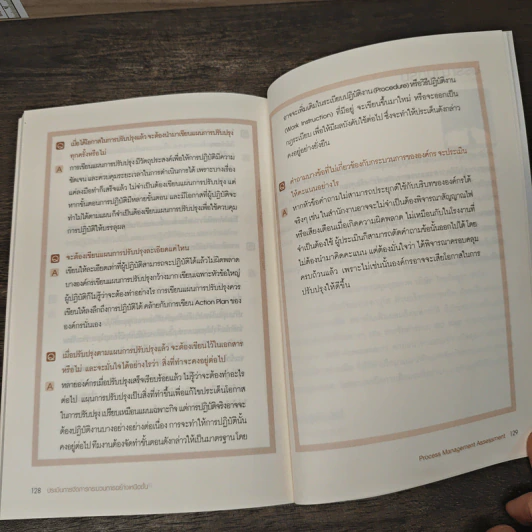 Q เมื่อได้โอกาสในการปรับปรุงแล้ว จะต้องนำมาเขียนแผนการปรับปรุง
ทุกครั้งหรือไม่
A การเขียนแผนการปรับปรุง มีวัตถุประสงค์เพื่อให้การปฏิบัติมีความ
ชัดเจน และควบคุมระยะเวลาในการดำเนินการได้ เพราะบางเรื่อง
แค่ลงมือทำก็เสร็จแล้ว ไม่จำเป็นต้องเขียนแผนการปรับปรุง แต่
หากขั้นตอนการปฏิบัติมีหลายขั้นตอน และมีโอกาสที่ผู้ปฏิบัติจะ
ทำไม่ได้ตามแผนก็จำเป็นต้องเขียนแผนปรับปรุงเพื่อใช้ควบคุม
การปฏิบัติให้บรรลุผล
Q จะต้องเขียนแผนการปรับปรุงละเอียดแค่ไหน
A เขียนให้ละเอียดเท่าที่ผู้ปฏิบัติสามารถปฏิบัติได้แล้วไม่ผิดพลาด
บางองค์กรเขียนแผนปรับปรุงกว้างมาก เขียนเฉพาะหัวข้อใหญ่
ผู้ปฏิบัติก็ไม่รู้ว่าจะต้องทำอย่างไร การเขียนแผนการปรับปรุงควร
เขียนให้ลงลึกถึงการปฏิบัติได้ คล้ายกับการเขียน Action Plan ของ
องค์กรนั่นเอง
Q เมื่อปรับปรุงตามแผนการปรับปรุงแล้ว จะต้องเขียนไว้ในเอกสาร
หรือไม่ และจะมั่นใจได้อย่างไรว่า สิ่งที่ทำจะคงอยู่ต่อไป
A หลายองค์กรเมื่อปรับปรุงเสร็จเรียบร้อยแล้ว ไม่รู้ว่าจะต้องทำอะไร
ต่อไป แผนการปรับปรุงเป็นสิ่งที่ทำขึ้นเพื่อแก้ไขประเด็นโอกาส
ในการปรับปรุง เปรียบเหมือนแผนเฉพาะกิจ แต่การปฏิบัติจริงอาจจะ
ต้องปฏิบัติงานบางอย่างอย่างต่อเนื่อง การจะทำให้การปฏิบัตินั้น
คงอยู่ต่อไป ทีมงานต้องจัดทำขั้นตอนดังกล่าวให้เป็นมาตรฐาน โดย
128
อาจจะเพิ่มเติมในระเบียบปฏิบัติงาน (Procedure) หรือวิธีปฏิบัติงาน
(Work Instruction) ที่มีอยู่ จะเขียนขึ้นมาใหม่ หรือจะออกเป็น
กฎระเบียบ เพื่อให้มีผลบังคับใช้ต่อไป ซึ่งจะทำให้ประเด็นดังกล่าว
คงอยู่อย่างยั่งยืน
Q คำถามบางข้อที่ไม่เกี่ยวข้องกับกระบวนการขององค์กร จะประเมิน
ให้คะแนนอย่างไร
A หากหัวข้อคำถามไม่สามารถประยุกต์ใช้กับบริบทขององค์กรได้
จริงๆ เช่น ในสำนักงานอาจจะไม่จำเป็นต้องพิจารณาสัญญาณไฟ
หรือเสียงเตือนเมื่อเกิดความผิดพลาด ไม่เหมือนกับในโรงงานที่
จำเป็นต้องใช้ ผู้ประเมินก็สามารถตัดคำถามข้อนั้นออกไปได้ โดย
ไม่ต้องนำมาคิดคะแนน แต่ต้องมั่นใจว่า ได้พิจารณาครอบคลุม
ครบถ้วนแล้ว เพราะไม่เช่นนั้นองค์กรอาจจะเสียโอกาสในการ
ปรับปรุงให้ดีขึ้น
Process Management Assessment 129